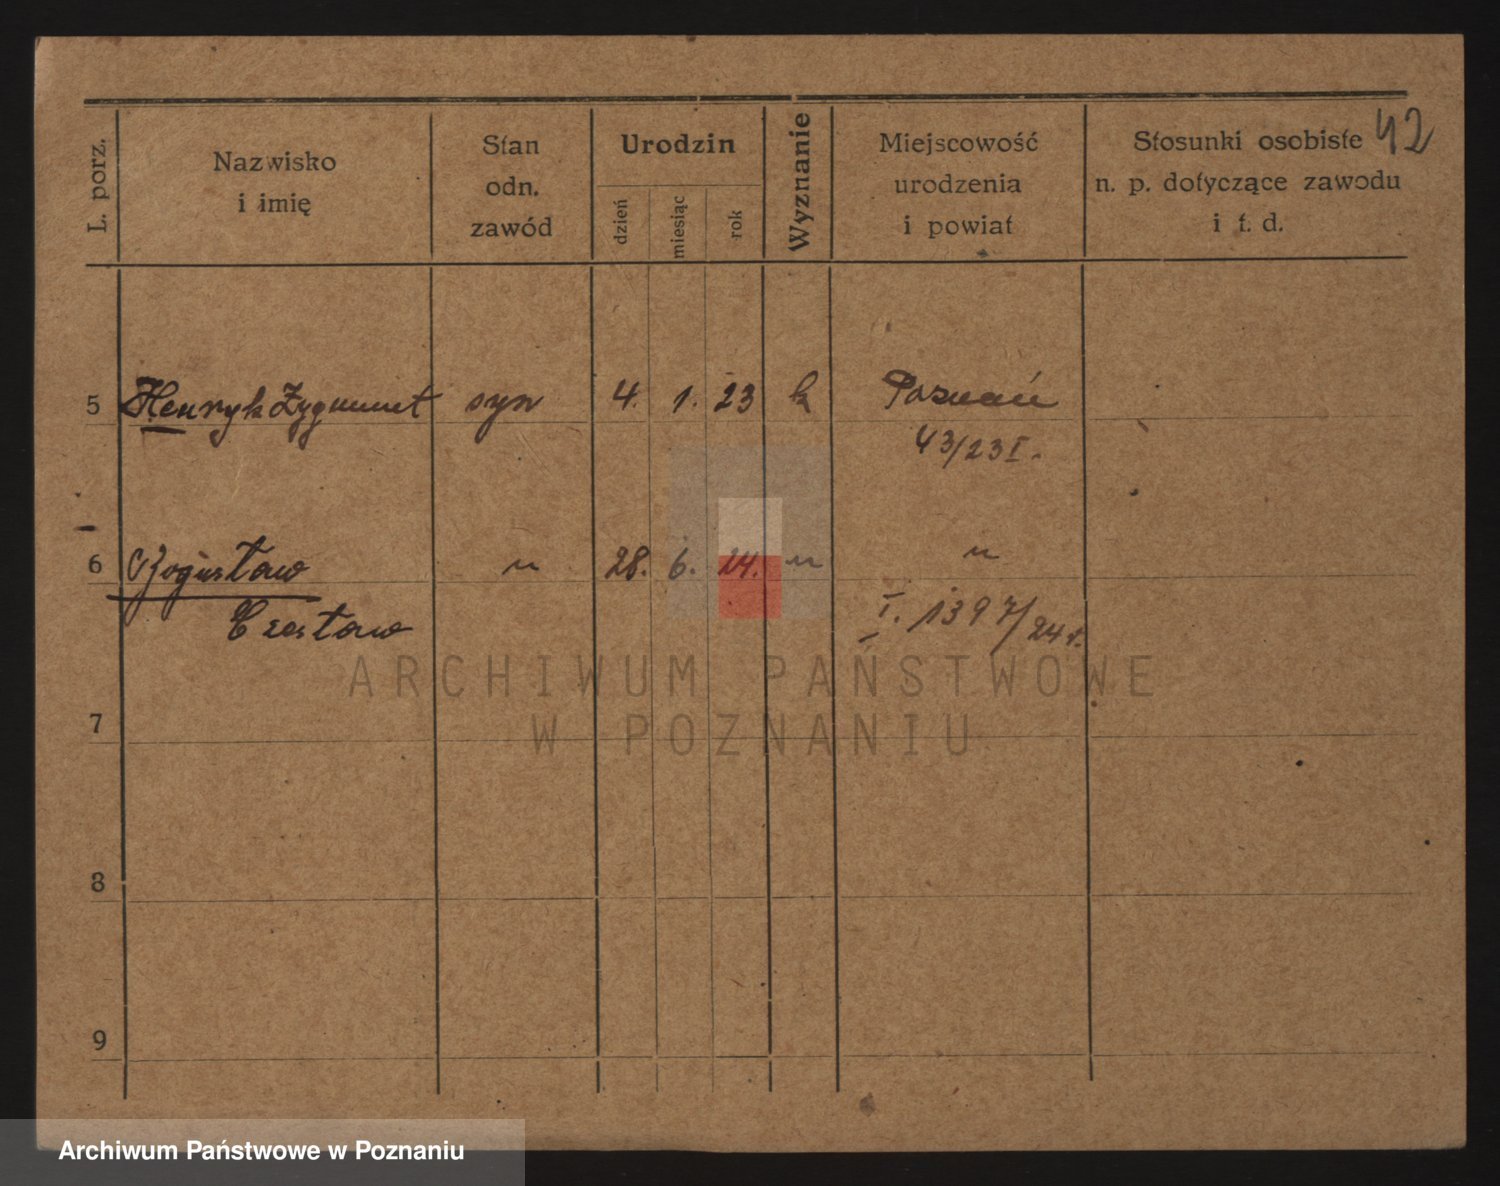 42
L. porz.
Nazwisko
i imię
Stan
odn.
zawód
Urodzin
dzień
miesiąc
rok
Wyznanie
Miejscowość
urodzenia
i powiat
Stosunki osobiste
n. p. dotyczące zawodu
i t. d.
5 Henryk Zygmunt syn 4. 1. 23 k Poznań
43/23 I.
6 Bogusław " 28. 6. 24. " "
Czesław I. 1397/24 r.
7
8
9
ARCHIWUM PAŃSTWOWE
W POZNANIU
Archiwum Państwowe w Poznaniu